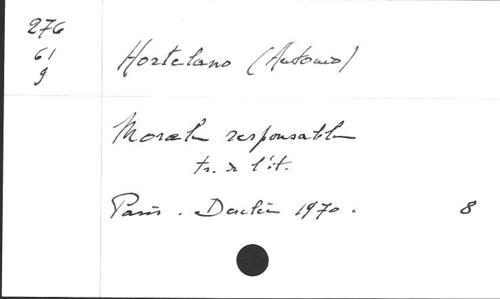 276
61
9
Hortelano (Antonio)
Morale responsable
tr. de l'it.
Paris. Desclée 1970. 8